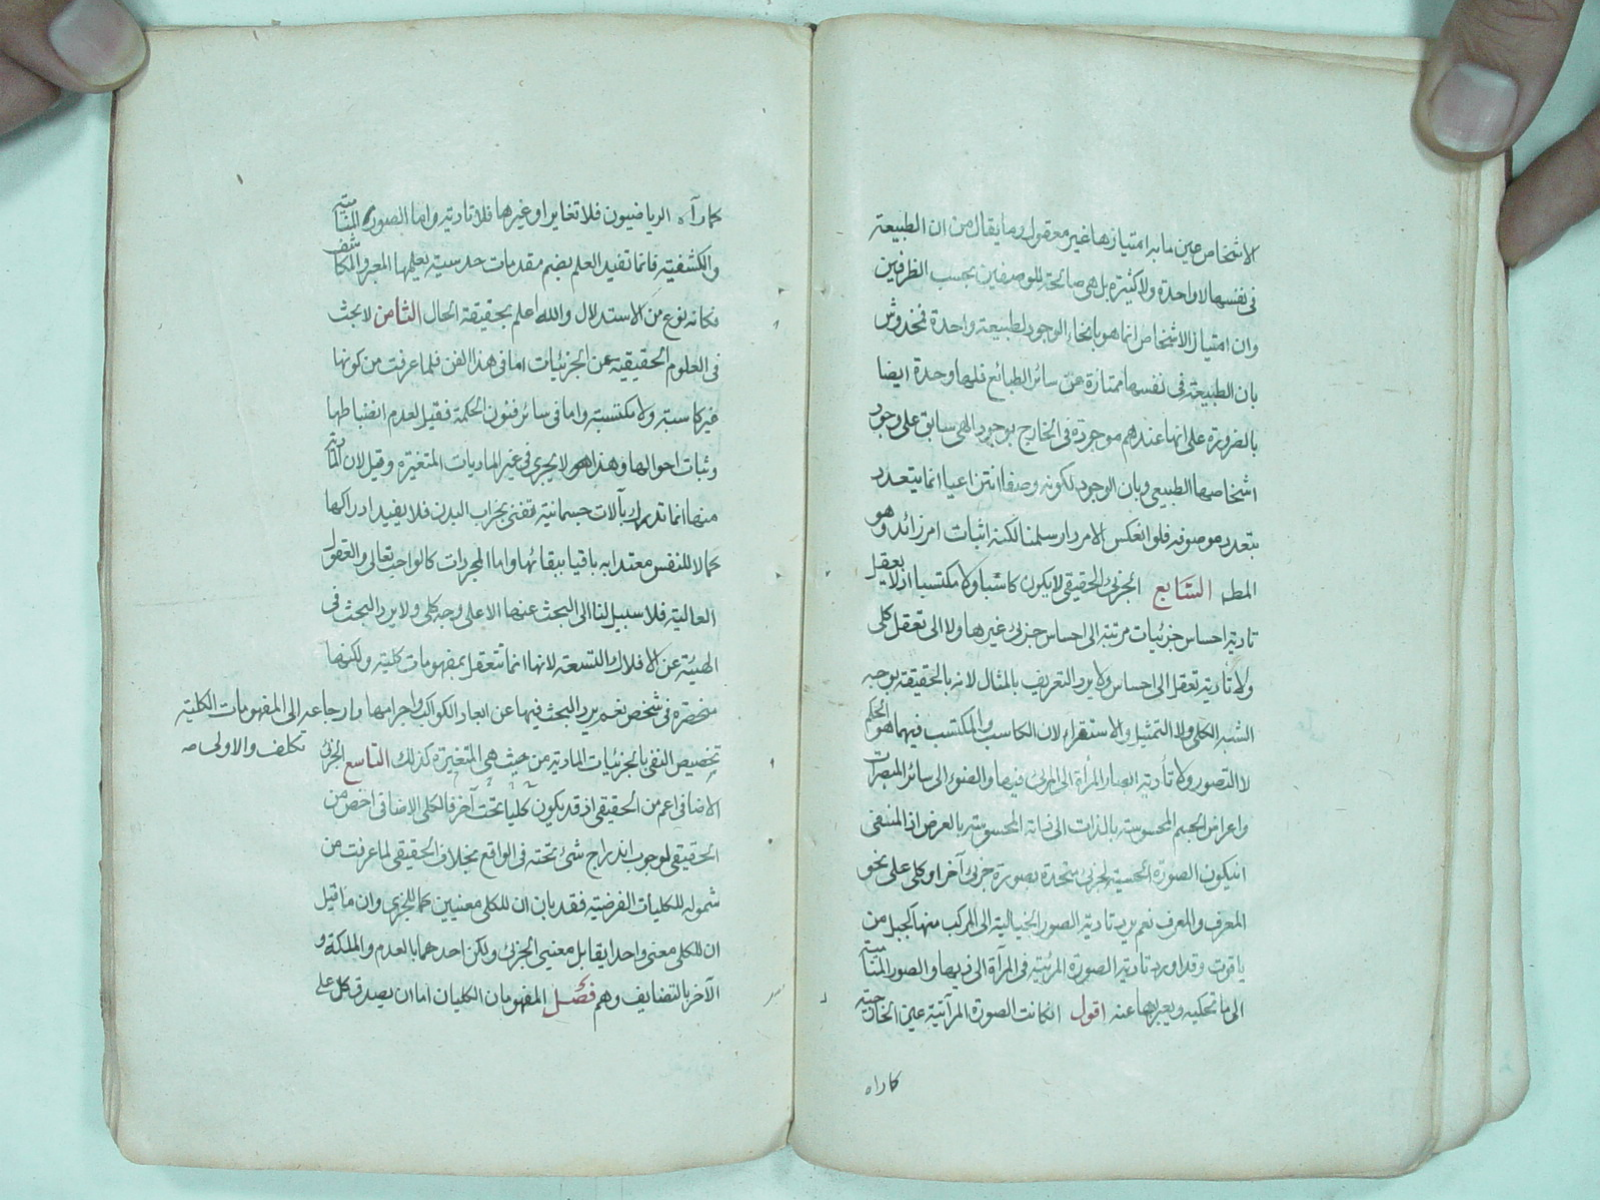 الاشخاص عين ما به امتيازها غير معقول وما يقال من ان الطبيعة
فى نفسها لا واحدة ولا كثيرة بل هى صالحة للوصفين بحسب الظرفين
وان امتياز الاشخاص انما هو بانحاء الوجود لطبيعة واحدة فمخدوش
بان الطبيعة فى نفسها ممتازة عن سائر الطبائع فلها وحدة ايضا
بالضرورة على انها عندهم موجودة فى الخارج بوجود الهى سابق على وجود
اشخاصها الطبيعى وبان الوجود لكونه وصفا انتزاعيا انما يتعدد
بتعدد موصوفه فلو انعكس الامر دار سلمنا لكنه اثبات امر زائد وهو
المط السابع الجزئى الحقيقى لا يكون كاسبا ولا مكتسبا اذ لا يعقل
تادية احساس جزئيات مرتبة الى احساس جزئى غيرها ولا الى تعقل كلى
ولا تأدية تعقل الى احساس ولا يرد التعريف بالمثال لانه بالحقيقة بوجه
الشبه الكلى ولا التمثيل والاستقراء لان الكاسب والمكتسب فيهما هو الحكم
لا التصور ولا تأدية ابصار المرأة الى المرئى فيها والضوء الى سائر المبصرات
واعراض الجسم المحسوسة بالذات الى ذاته المحسوسة بالعرض اذ المنفى
ان يكون الصورة الحسية لجزئى متحدة بصورة جزئى آخر او كلى على نحو
المعرف والمعرف نعم يرد تادية الصور الخيالية الى المركب منها كجبل من
ياقوت وقد اورد تادية الصورة المرئية فى المرآة الى ذيها والصور المنامية
الى ما تحكيه ويعبر بها عنه اقول ان كانت الصورة المرآتية عين الخارجية
كما راه
كما رآه الرياضيون فلا تغاير او غيرها فلا تادية واما الصور المنامية
والكشفية فانما تفيد العلم بضم مقدمات حدسية يعلمها المعبر والمكاشف
فكانه نوع من الاستدلال والله اعلم بحقيقة الحال الثامن لا بحث
فى العلوم الحقيقية عن الجزئيات اما فى هذا الفن فلما عرفت من كونها
غير كاسبة ولا مكتسبة واما فى سائر فنون الحكمة فقيل لعدم انضباطها
وثبات احوالها وهذا لا يجرى فى غير الماديات المتغيرة وقيل لان المادية
منها انما تدرك بآلات جسمانية تفنى بخراب البدن فلا يفيد ادراكها
كمالا للنفس معتدا به باقيا ببقائها واما المجردات كالواجب تعالى والعقول
العالية فلا سبيل لنا الى البحث عنها الا على وجه كلى ولا يرد البحث فى
الهيئة عن الافلاك التسعة لانها انما تتعقل بمفهومات كلية ولكنها
منحصرة فى شخص نعم يرد البحث فيها عن ابعاد الكواكب واجرامها وارجاعه الى المفهومات الكلية
تكلف والاولى صه
تخصيص النفى بالجزئيات المادية من حيث هى المتغيرة كذلك التاسع الجزئى
الاضافى اعم من الحقيقى اذ قد يكون كليا تحت آخر فالكلى الاضافى اخص من
الحقيقى لوجوب اندراج شئ تحته فى الواقع بخلاف الحقيقى لما عرفت من
شموله للكليات الفرضية فقد بان ان للكلى معنيين كما للجزئى وان ما قيل
ان للكلى معنى واحدا يقابل معنيى الجزئى ولكن احدهما بالعدم والملكة و
الآخر بالتضايف وهم فصل المفهومان الكليان اما ان يصدق كل على